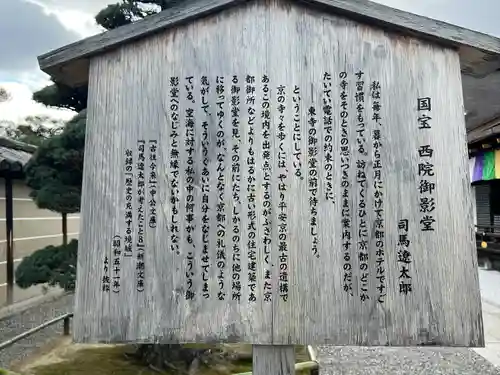 国宝 西院御影堂
司馬遼太郎
私は毎年、暮から正月にかけて京都のホテルですご
す習慣をもっている。訪ねてくるひとに京都のどこか
の寺をそのときの思いつきのままに案内するのだが、
たいてい電話での約束のときに、
東寺の御影堂の前で待ちましょう。
ということにしている。
京の寺々を歩くには、やはり平安京の最古の遺構で
あるこの境内を出発点とするのがふさわしく、また京
都御所などよりもはるかに古い形式の住宅建築であ
る御影堂を見、その前にたち、しかるのちに他の場所
に移ってゆくのが、なんとなく京都への礼儀のような
気がして、そういうぐあいに自分をなじませてしまっ
ている。空海に対する私の中の何事かも、こういう御
影堂へのなじみと無縁でないかもしれない。
『古往今来』（中公文庫）
『司馬遼太郎が考えたこと8』（新潮文庫）
収録の「歴史の充満する境域」
（昭和五十一年）
より抜粋